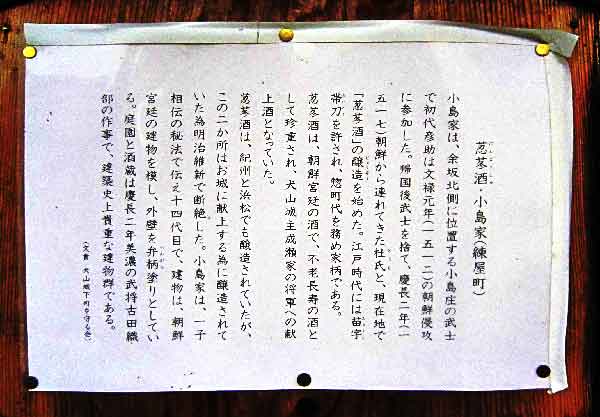 忍苳酒・小島家(練屋町)
小島家は、余坂北側に位置する小島庄の武士
で初代弥助は文禄元年(一五一二)の朝鮮侵攻
に参加した。帰国後武士を捨て、慶長二年(一
五一七)朝鮮から連れてきた杜氏と、現在地で
「忍苳酒」の醸造を始めた。江戸時代には苗字
帯刀を許され、惣町代を務め家柄である。
忍苳酒は、朝鮮宮廷の酒で、不老長寿の酒と
して珍重され、犬山城主成瀬家の将軍への献
上酒となっていた。
忍苳酒は、紀州と浜松でも醸造されていたが、
この二か所はお城に献上する為に醸造されて
いた為明治維新で断絶した。小島家は、一子
相伝の秘法で伝え十四代目で、建物は、朝鮮
宮廷の建物を模し、外壁を弁柄塗りとしてい
る。庭園と酒蔵は慶長二年美濃の武将古田織
部の作事で、建築史上貴重な建物群である。
(文責 犬山城下町を守る会)